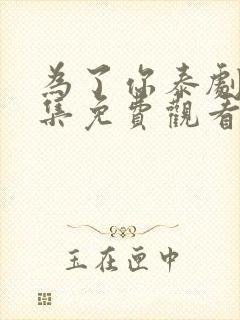 為了你泰劇
集免費觀看
玉在匣中